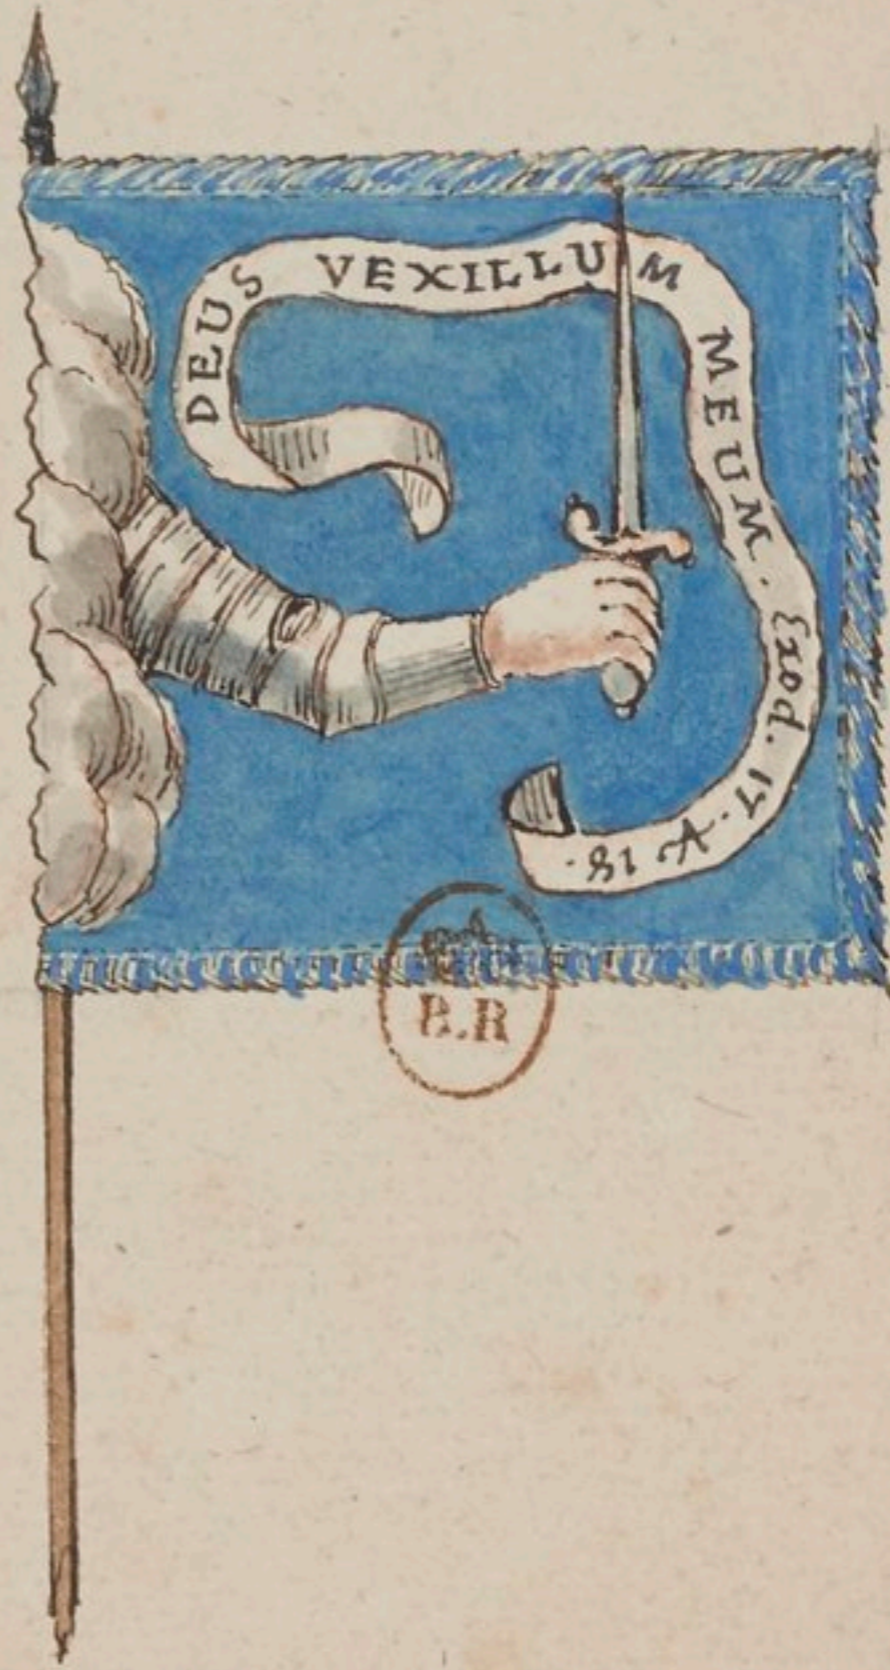 DEUS VEXILLUM MEUM. Exod. 17. A 18.
B.R